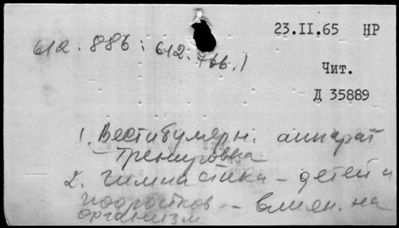 23.II.65 НР
612.886:612.766.1
Чит.
Д 35889
1. Вестибулярн. аппарат
- тренировка
2. Гимнастика - детей и
подростков - влиян. на
организм